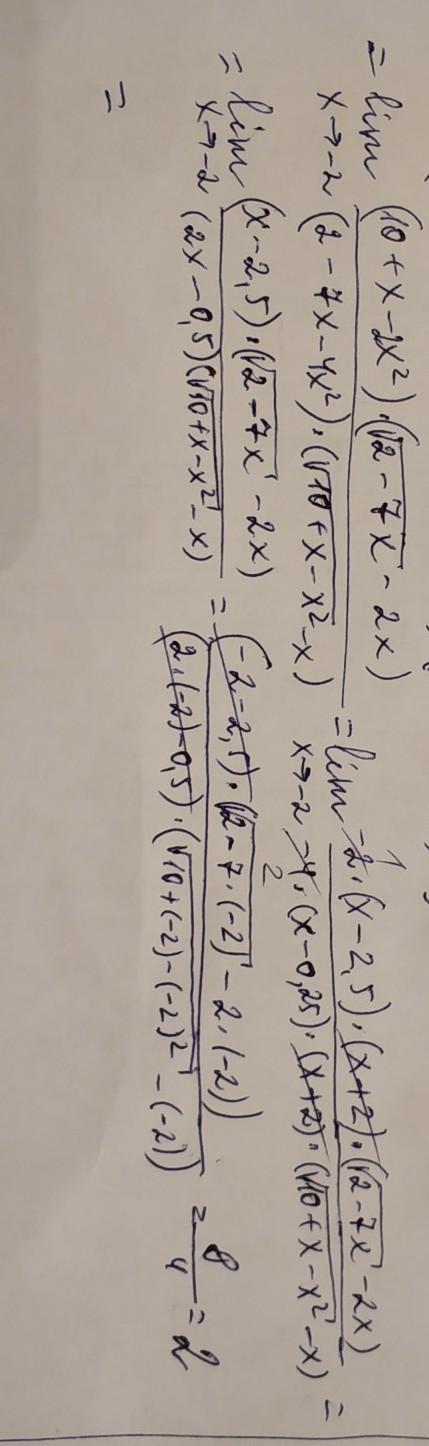 = lim x→-2 (10 + x - 2x²)·(√(2 - 7x) - 2x) / (2 - 7x - 4x²)·(√(10 + x - x²) - x) = lim x→-2 -2·(x - 2,5)·(x+2)·(√(2 - 7x) - 2x) / -4·(x - 0,25)·(x+2)·(√(10 + x - x²) - x) =
= lim x→-2 (x - 2,5)·(√(2 - 7x) - 2x) / (2x - 0,5)(√(10 + x - x²) - x) = (-2 - 2,5)·(√(2 - 7·(-2)) - 2·(-2)) / (2·(-2) - 0,5)·(√(10 + (-2) - (-2)²) - (-2)) = 8/4 = 2
=